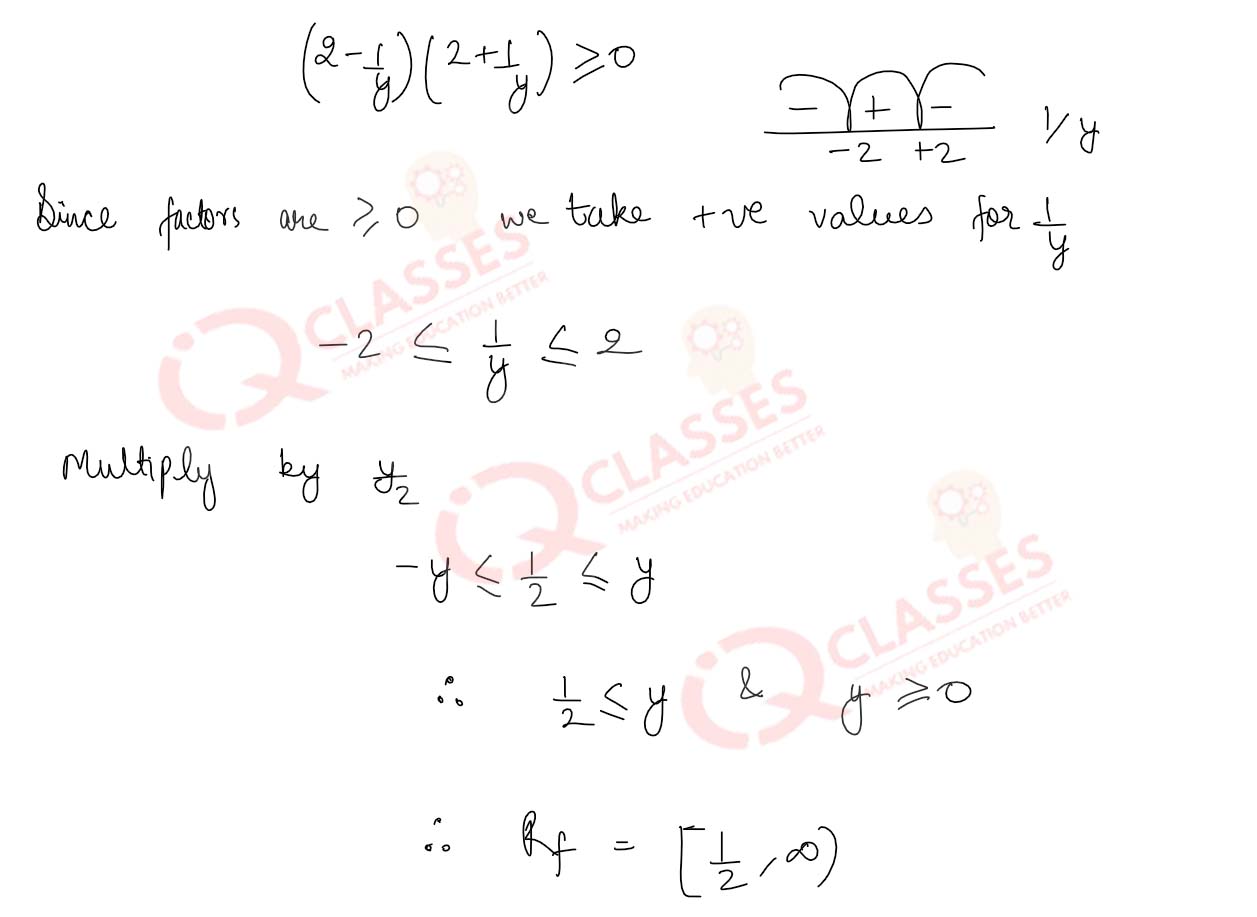 (2 - 1/y)(2 + 1/y) ≥ 0
- + -
-2 +2
1/y
Since factors are ≥ 0 we take +ve values for 1/y
-2 ≤ 1/y ≤ 2
Multiply by y/2
-y ≤ 1/2 ≤ y
∴ 1/2 ≤ y & y ≥ 0
∴ Rf = [1/2, ∞)
iQ CLASSES
MAKING EDUCATION BETTER
iQ CLASSES
MAKING EDUCATION BETTER
iQ CLASSES
MAKING EDUCATION BETTER